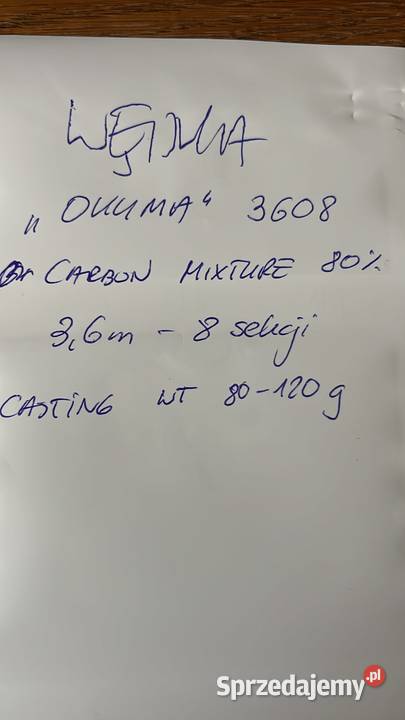 WĘDKA
„OKUMA" 3608
CARBON MIXTURE 80%
3,6m - 8 sekcji
CASTING WT 80-120g
Sprzedajemy.pl